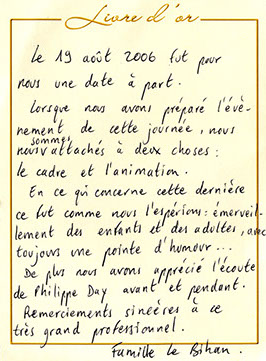 Livre d'or
Le 19 août 2006 fut pour
nous une date à part.
Lorsque nous avons préparé l'évè-
nement de cette journée, nous
nous sommes attachés à deux choses :
le cadre et l'animation.
En ce qui concerne cette dernière
ce fut comme nous l'espérions : émerveil-
lement des enfants et des adultes, avec
toujours une pointe d'humour...
De plus nous avons apprécié l'écoute
de Philippe Day avant et pendant.
Remerciements sincères à ce
très grand professionnel.
Famille le Bihan.